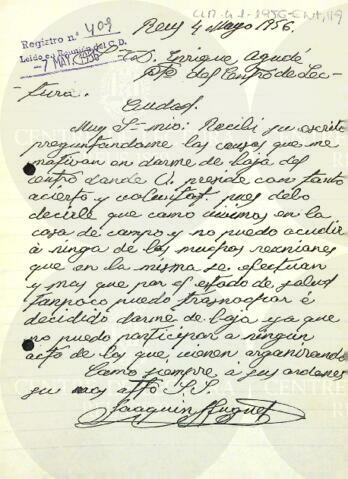 Reus 4 Mayo 1956.
Registro n.º 409
Leido en Reunión del C.D.
7 MAY. 1956
D. Enrique Aguadé
Pte del Centro de Lec-
tura.
Ciudad.
Muy Sr mio: Recibí su escrito
preguntandome las causas que me
motivan en darme de baja del
Centro donde U. preside con tanto
acierto y voluntat. pues debo
decirle que como vivimos en la
casa de campo y no puedo acudir
à ninga de las muchas reuniones
que en la misma se efectuan
y mas que por el estado de salud
tampoco puedo trasnochar é
decidido darme de baja ya que
no puedo participar a ningún
acto de los que, vienen organizando
Como siempre a sus ordenes
su muy affo S.S.
Joaquin Huguet